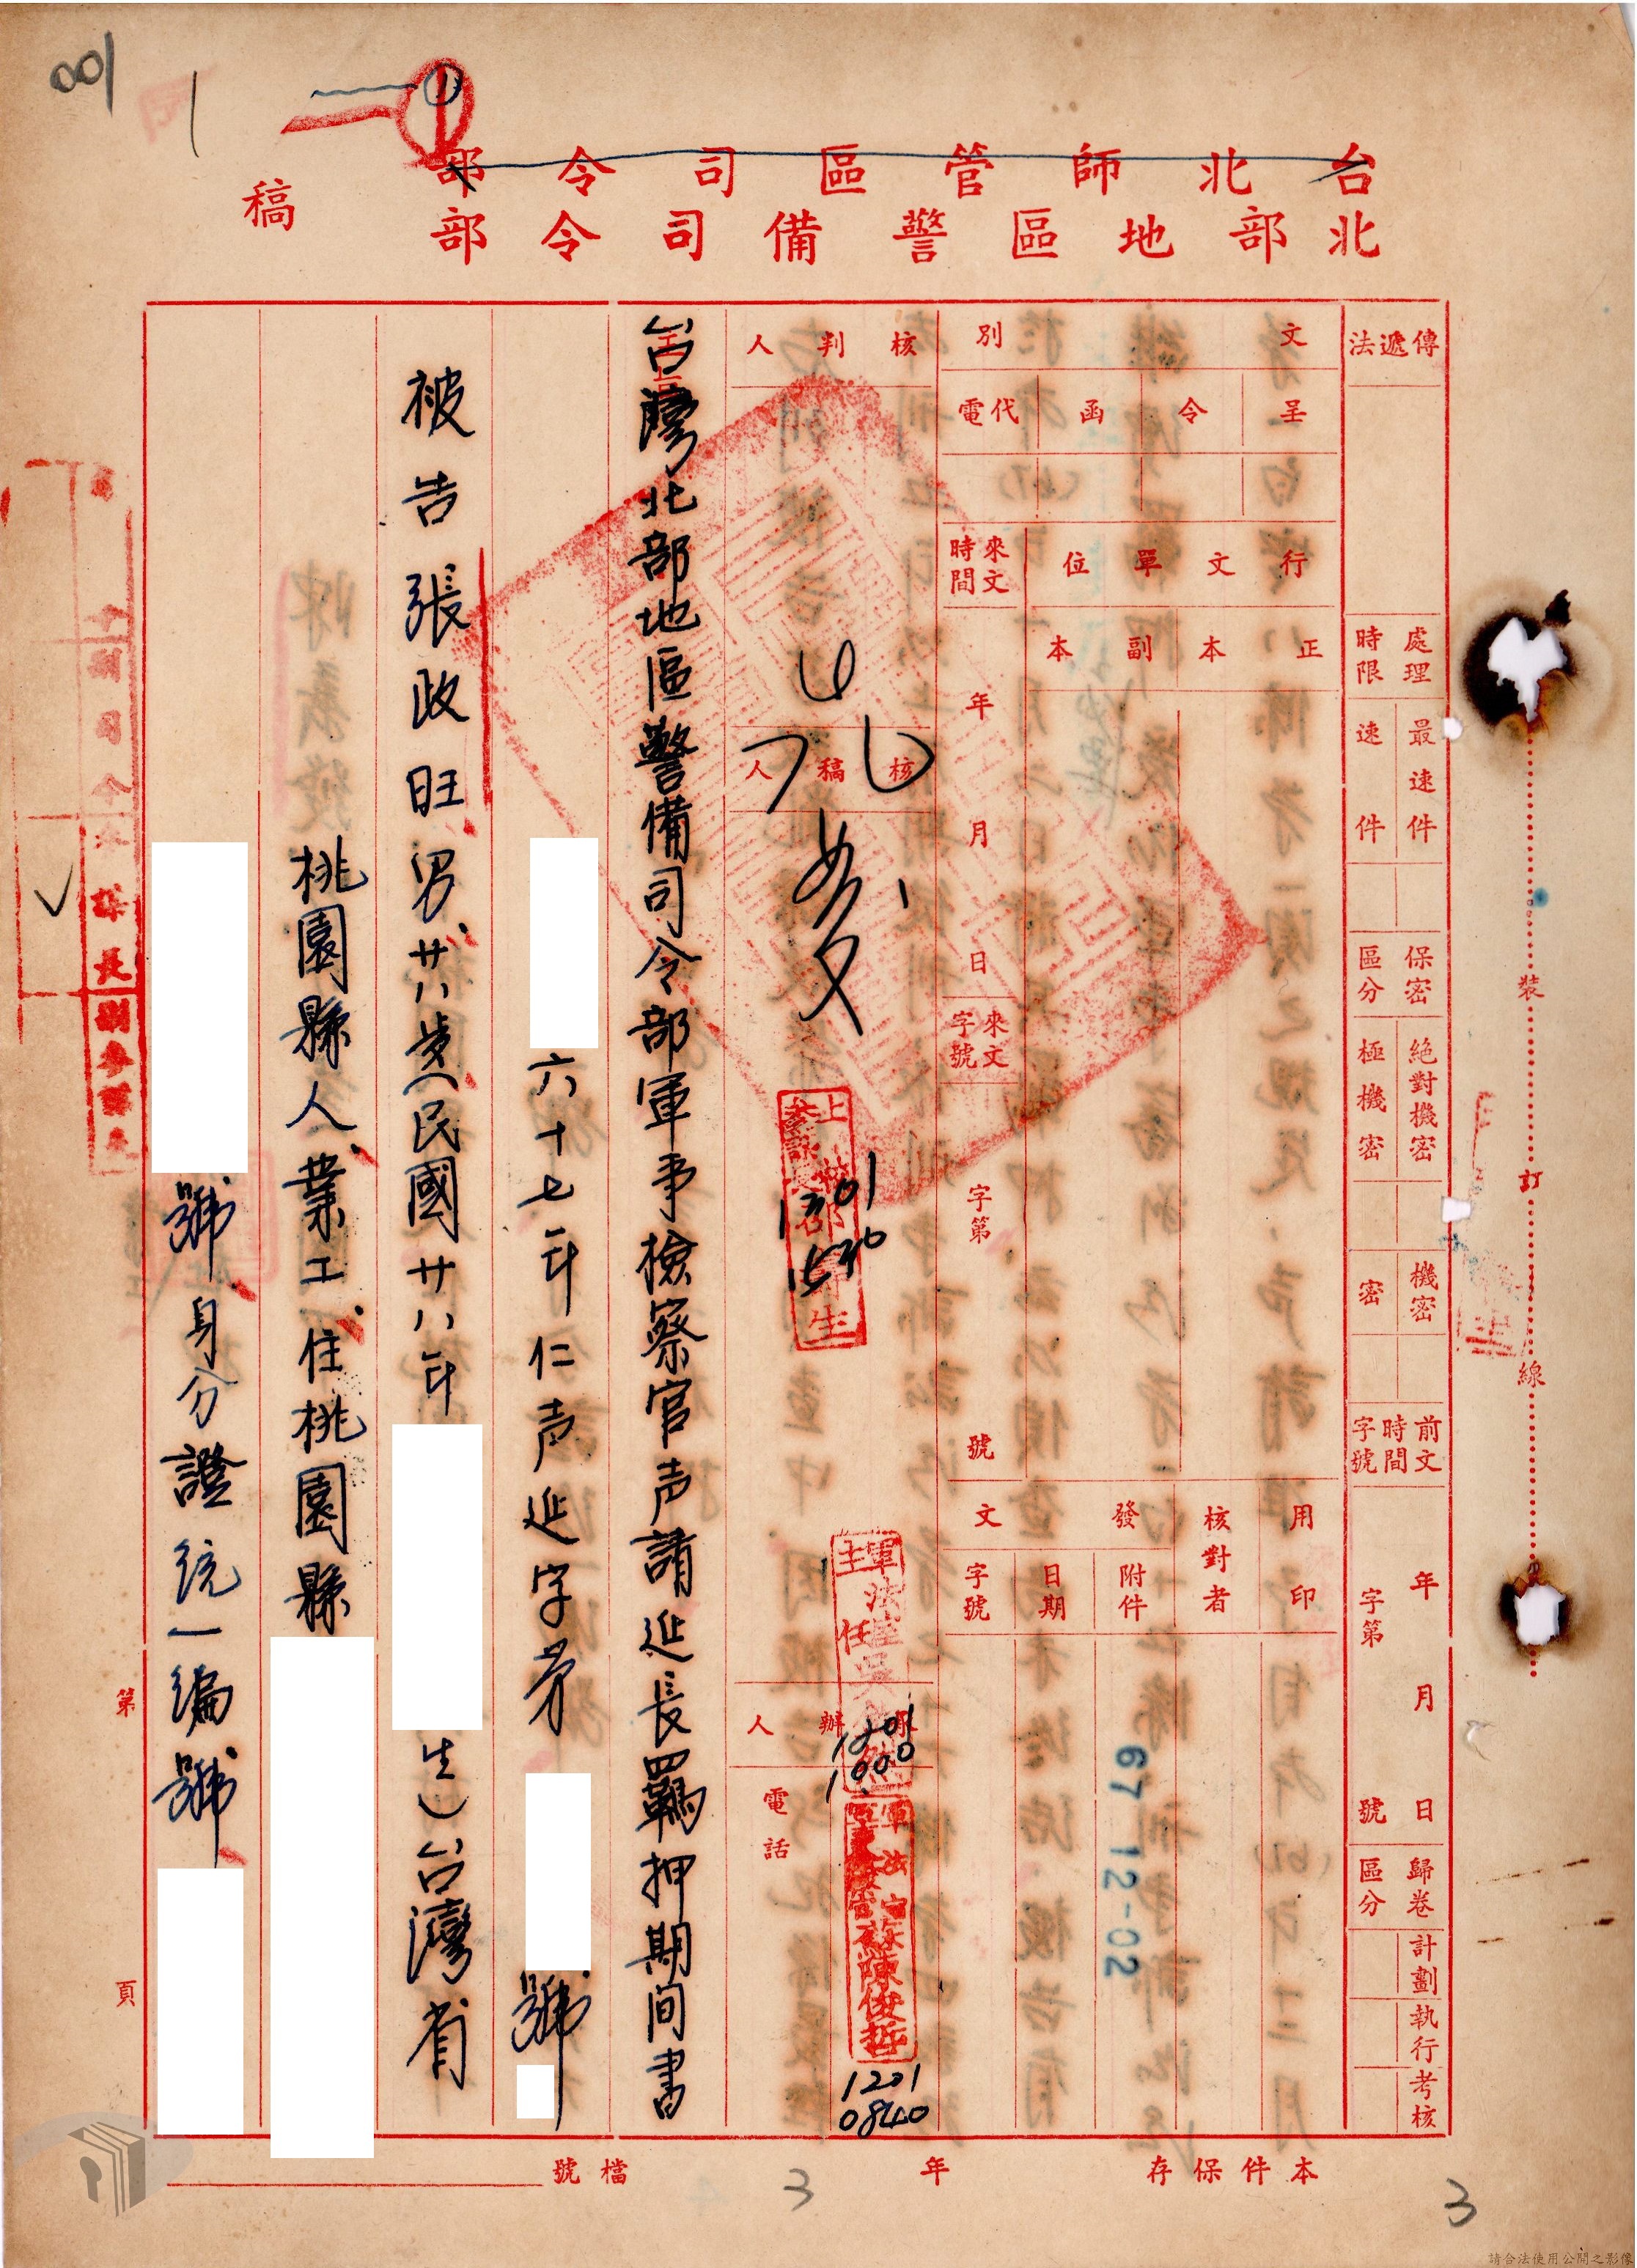 001
台北師管區司令部
北部地區警備司令部
稿
傳遞法
處理時限
最速件
速件
保密區分
絕對機密
極機密
機密
密
前文時間字號
年 月 日
字第 號
歸卷區分
計劃
執行
考核
文別
呈
令
函
代電
行文單位
正本
副本
來文時間
年 月 日
來文字號
字第 號
用印
核對者
發文
附件
日期
字號
67 12-02
核判人
核稿人
1201
1530
承辦人
電話
1201
1000
軍法官
陳俊哲
1201
0840
台灣北部地區警備司令部軍事檢察官声請延長羈押期间書
六十七年仁声延字第 號
被告張政旺男廿八歲(民國廿八年 生)台灣省
桃園縣人業工住桃園縣
號身分證統一編號
裝
訂
線
第 頁
本件保存 年
檔號
3
3
請合法使用公開之影像